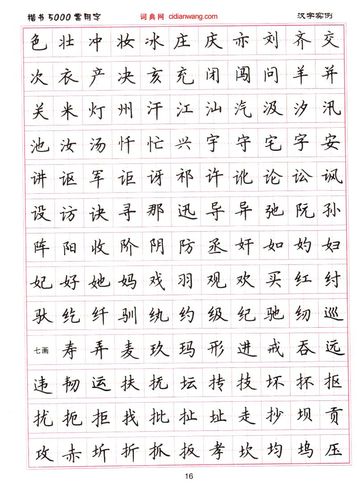 楷书5000常用字 词典网 cidianwang.com 汉字实例
色 壮 冲 妆 冰 庄 庆 亦 刘 齐 交
次 衣 产 决 亥 充 闭 闯 问 羊 并
关 米 灯 州 汗 江 汕 汽 汲 汐 汛
池 汝 汤 忏 忙 兴 宇 守 宅 字 安
讲 讴 军 讵 讶 祁 许 讹 论 讼 讽
设 访 诀 寻 那 迅 导 异 弛 阮 孙
阵 阳 收 阶 阴 防 丞 奸 如 妁 妇
妃 好 她 妈 戏 羽 观 欢 买 红 纣
驮 纥 纤 驯 纨 约 级 纪 驰 纫 巡
七画 寿 弄 麦 玖 玛 形 进 戒 吞 远
违 韧 运 扶 抚 坛 抟 技 坏 抔 抠
扰 扼 拒 找 批 扯 址 走 抄 坝 贡
攻 赤 圻 折 抓 扳 孝 坎 均 坞 压
16